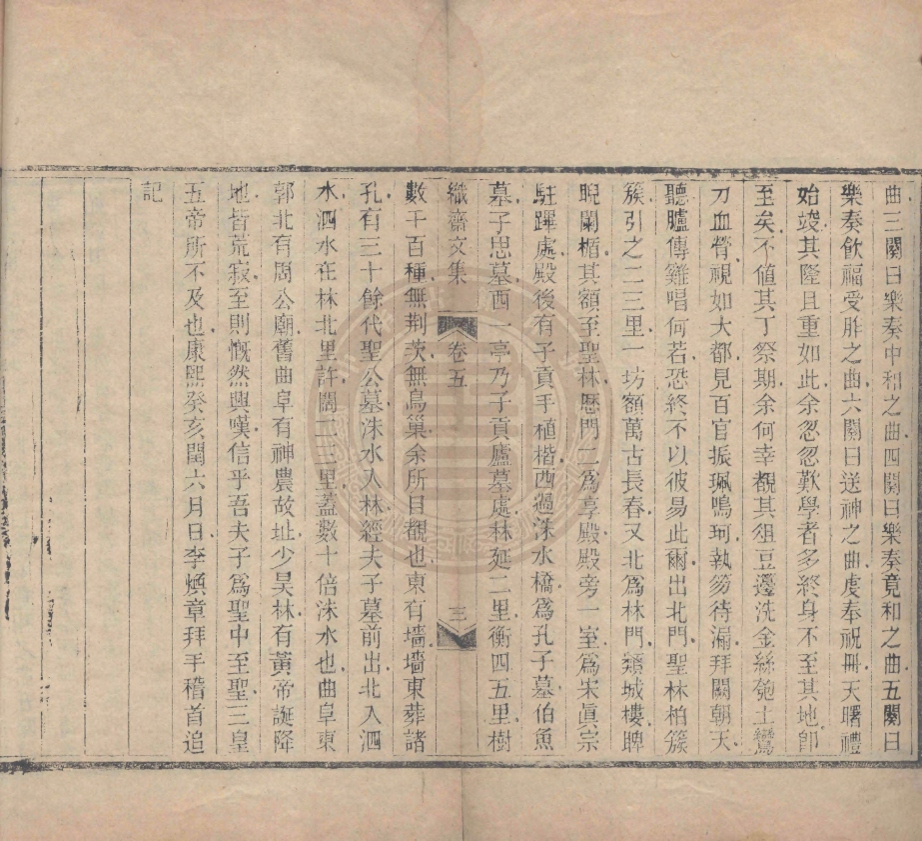 曲三闋曰樂奏中和之曲四闋曰樂奏竟和之曲五闋曰
樂奏飲福受胙之曲六闋曰送神之曲虔奉祝冊天曙禮
始竣其隆且重如此余忽忽歎學者多終身不至其地卽
至矣不値其丁祭期余何幸覩其俎豆籩洗金絲匏土鸞
刀血膋視如大都見百官振珮鳴珂執笏待漏拜闕朝天
聽臚傳雞唱何若恐終不以彼易此爾出北門聖林柏簇
簇引之二三里一坊額萬古長春又北爲林門類城樓睥
睨闌楯其額至聖林歷門二爲享殿殿旁一室爲宋眞宗
駐蹕處殿後有子貢手植楷西過洙水橋爲孔子墓伯魚
墓子思墓西一亭乃子貢廬墓處林延二里衡四五里樹
織齋文集 卷五 三
數千百種無荆茨無鳥巢余所目覩也東有墻墻東葬諸
孔有三十餘代聖公墓洙水入林經夫子墓前出北入泗
水泗水在林北里許闊二三里蓋數十倍洙水也曲阜東
郭北有周公廟舊曲阜有神農故址少昊林有黃帝誕降
地皆荒寂至則慨然興嘆信乎吾夫子爲聖中至聖三皇
五帝所不及也康熙癸亥閏六月日李煥章拜手稽首追
記